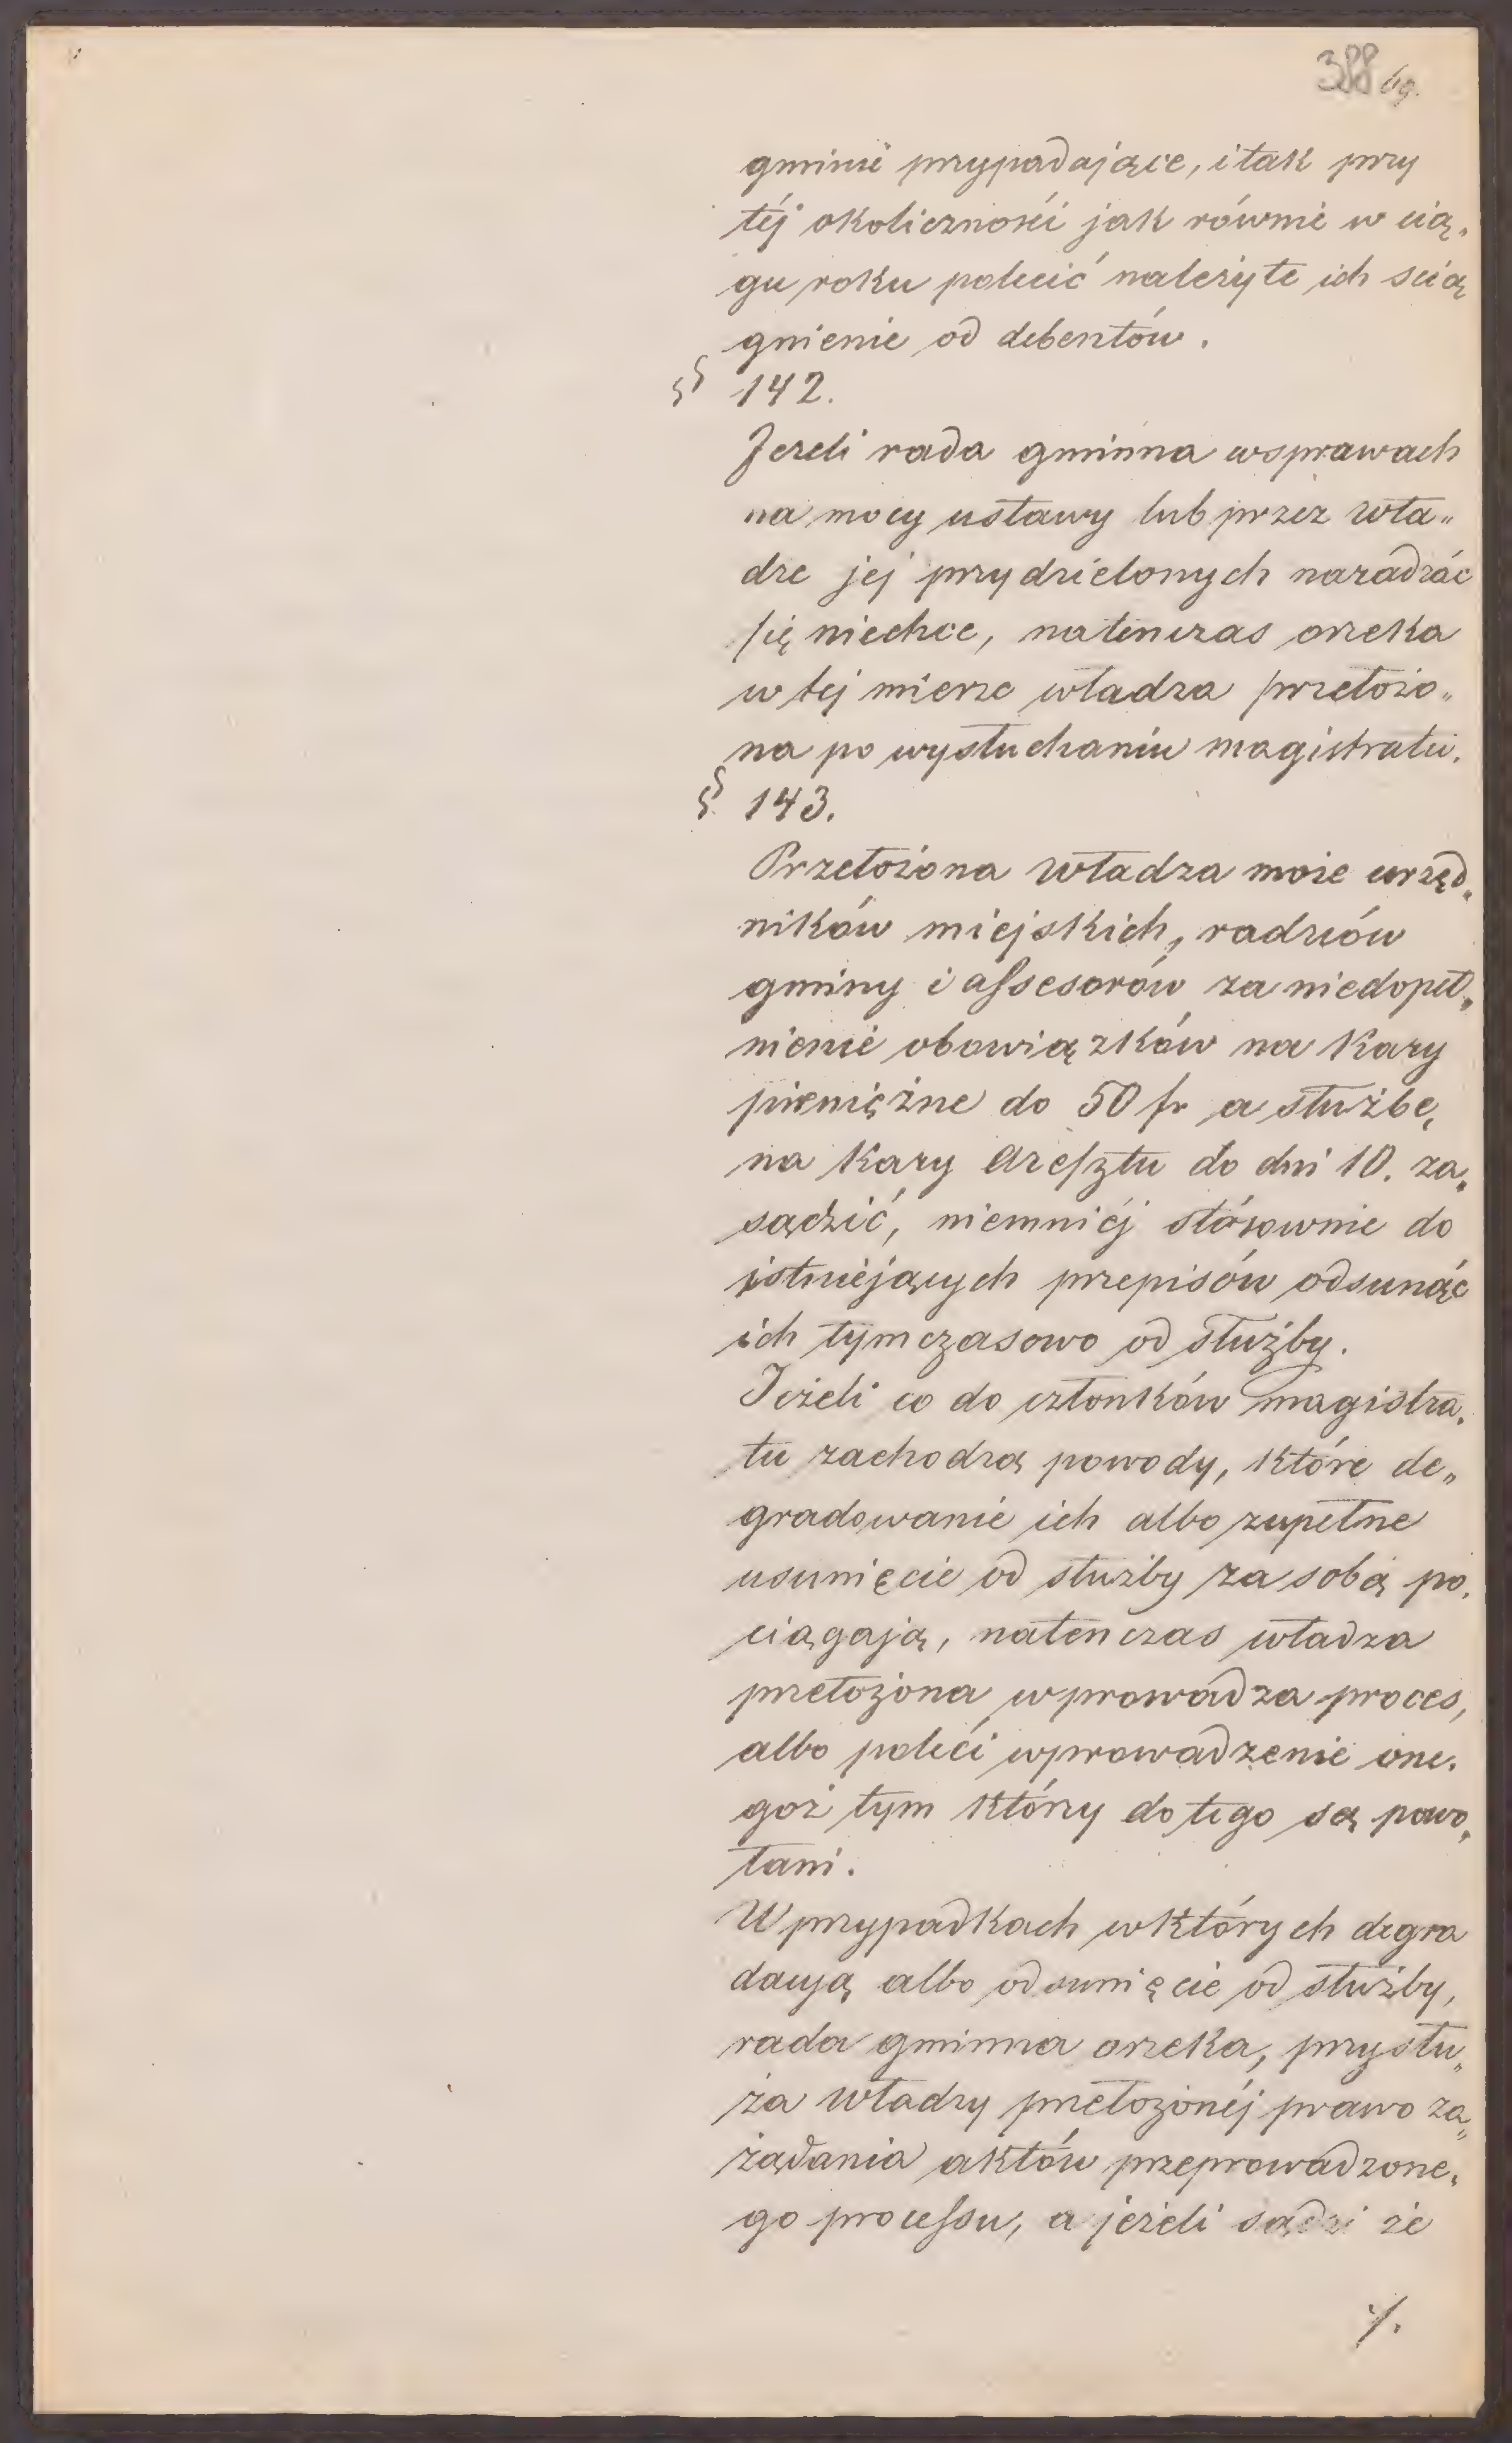 388 69.
gminie przypadające, i tak przy
téj okoliczności jak równie w cią„
gu roku polecić należyte ich scią
gnienie od debentów.
§ 142.
Jeżeli rada gminna wsprawach
na mocy ustawy lub przez wła„
dze jej przydzielonych naradzać
się niechce, natenczas orzeka
w tej mierze władza przełożo„
na po wysłuchaniu magistratu.
§ 143.
Przełożona władza może urzęd„
ników miejskich, radzców
gminy i assesorów za niedopeł„
nienie obowiązków na kary
pieniężne do 50 fr a służbę,
na kary aresztu do dni 10. za„
sądzić, niemniéj stósownie do
istniejących przepisów odsunąć
ich tymczasowo od służby.
Jeżeli co do członków magistra„
tu zachodzą powody, które de„
gradowanie ich albo zupełne
usunięcie od służby za sobą po„
ciągają, natenczas władza
przełożona wprowadza proces,
albo poleci wprowadzenie one„
goż tym którzy do tego są powo„
łani.
W przypadkach wktórych degra
dacyą albo odsunięcie od służby,
rada gminna orzeka, przysłu„
ża władzy przełożonéj prawo za„
żądania aktów przeprowadzone„
go processu, a jeżeli sądzi że
./.